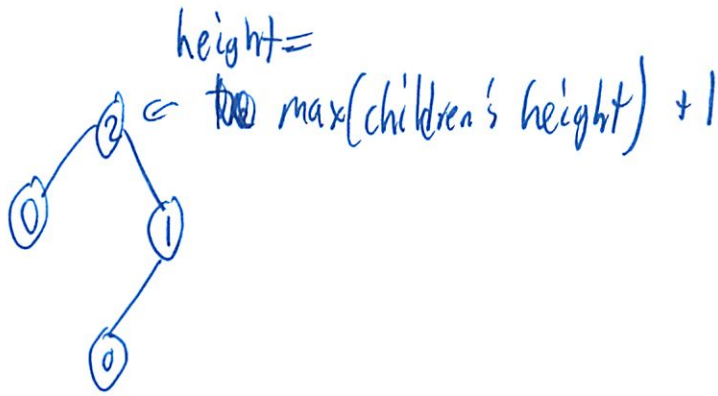 height =
2 ← max(children's height) + 1
0
1
0